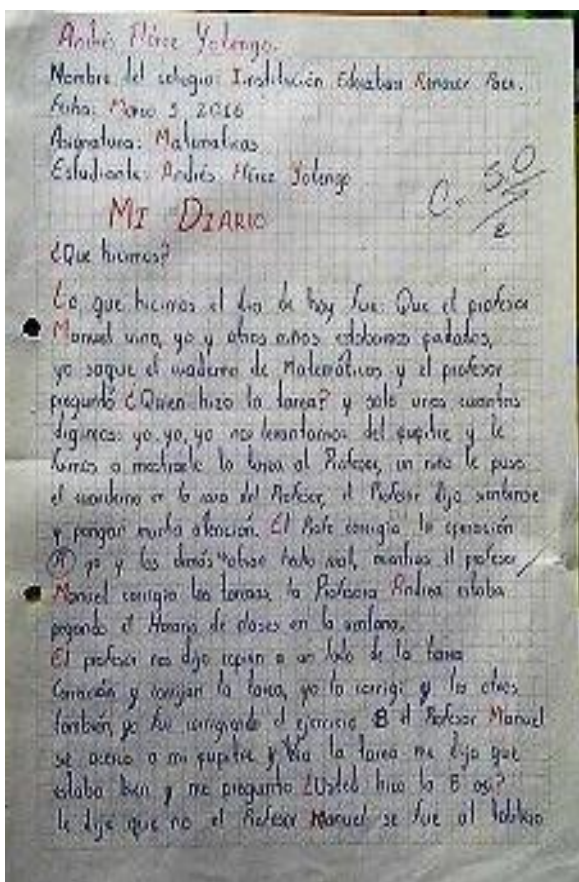 Andrés Pérez Yotengo.
Nombre del colegio: Institución Educativa Renacer Paez.
Fecha: Marzo 3, 2016
Asignatura: Matematicas
Estudiante: Andrés Pérez Yotengo
C. 5,0
MI DIARIO
¿Que hicimos?
Lo que hicimos el dia de hoy fue: Que el profesor
Manuel vino, yo y otros niños estabamos parados,
yo saque el cuaderno de Matemáticas y el profesor
pregunto ¿Quien hizo la tarea? y solo unos cuantos
digimos: yo, yo, yo nos levantamos del pupitre y le
fuimos a mostrarle la tarea al Profesor, un niño le puso
el cuaderno en la cara del Profesor, el Profesor dijo sientense
y pongan mucha atención. El Profe corrigio la operación
A yo y los demás todo mal, mientras el profesor
Manuel corrigio las tareas, la Profesora Andrea estaba
pegando el Horario de clases en la ventana.
El profesor nos dijo copien a un lado de la tarea
Corrección y corrijan la tarea, yo la corrigi y los otros
también, yo fui corrigiendo el ejercicio B el Profesor Manuel
se acerco a mi pupitre y la tarea me dijo que
estaba bien y me pregunto ¿Usted hizo la B asi?
le dije que no el Profesor Manuel se fue al tablero